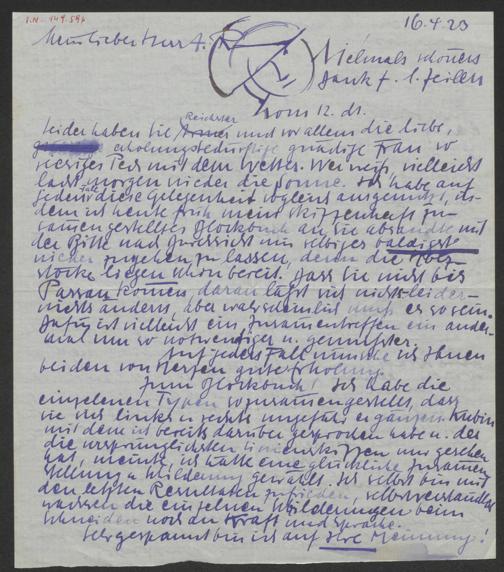 I.N. 149.584
16.4.23
Mein lieber Herr A. R.
Vielmals schönen
Dank f. l. Zeilen
vom 12. ds.
Leider haben Sie Reichster und vor allem die liebe,
erholungsbedürftige gnädige Frau so
riesiges Pech mit dem Wetter. Wer weiß, vielleicht
lacht morgen wieder die Sonne. Ich habe auf
jeden Fall diese Gelegenheit sogleich ausgenützt, in-
dem ich heute früh mein skizzenhaft zu-
samengestelltes Glockbuch an Sie absandte mit
der Bitte nach Durchsicht mir selbiges baldigst
wieder zugehen zu lassen, denn die Holz-
stöcke liegen schon bereit. Dass Sie nicht bis
Passau komen, daran läßt sich nichts leider –
nichts ändern, aber wahrscheinlich muß es so sein.
Dafür ist vielleicht ein Zusamentreffen ein ander-
mal um so notwendiger u. genußreicher.
Auf jeden Fall wünsche ich Ihnen
beiden von Herzen gute Erholung.
Zum Glockbuch! Ich habe die
einzelenen Typen so zusamengestellt, dass
sie sich links u. rechts ungefähr ergänzen. Kubin
mit dem ich bereits darüber gesprochen habe u. der
die ursprünglichsten Linienskizzen nur gesehen
hat, meinte, ich hätte eine glückliche Zusamen
stellung u. Milderung gewählt. Ich selbst bin mit
den letzten Resultaten zufrieden, selbstverständlich
wachsen die einzelnen Milderungen beim
Schneiden noch an Kraft und Sprache.
Sehr gespannt bin ich auf Ihre Meinung!